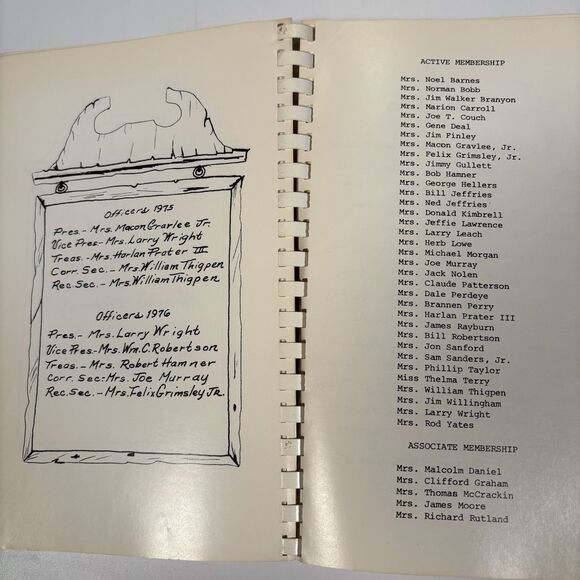 Officers 1975
Pres.- Mrs. Macon Gravlee Jr.
Vice Pres.-Mrs. Larry Wright
Treas.- Mrs. Harlan Prater III
Corr. Sec.- Mrs. William Thigpen
Rec. Sec.- Mrs. William Thigpen
Officers 1976
Pres.- Mrs. Larry Wright
Vice Pres.-Mrs. Wm. C. Robertson
Treas.- Mrs. Robert Hamner
Corr. Sec.-Mrs. Joe Murray
Rec. Sec.-Mrs. Felix Grimsley Jr.
ACTIVE MEMBERSHIP
Mrs. Noel Barnes
Mrs. Norman Bobb
Mrs. Jim Walker Branyon
Mrs. Marion Carroll
Mrs. Joe T. Couch
Mrs. Gene Deal
Mrs. Jim Finley
Mrs. Macon Gravlee, Jr.
Mrs. Felix Grimsley, Jr.
Mrs. Jimmy Gullett
Mrs. Bob Hamner
Mrs. George Hellers
Mrs. Bill Jeffries
Mrs. Ned Jeffries
Mrs. Donald Kimbrell
Mrs. Jeffie Lawrence
Mrs. Larry Leach
Mrs. Herb Lowe
Mrs. Michael Morgan
Mrs. Joe Murray
Mrs. Jack Nolen
Mrs. Claude Patterson
Mrs. Dale Perdeye
Mrs. Brannen Perry
Mrs. Harlan Prater III
Mrs. James Rayburn
Mrs. Bill Robertson
Mrs. Jon Sanford
Mrs. Sam Sanders, Jr.
Mrs. Phillip Taylor
Miss Thelma Terry
Mrs. William Thigpen
Mrs. Jim Willingham
Mrs. Larry Wright
Mrs. Rod Yates
ASSOCIATE MEMBERSHIP
Mrs. Malcolm Daniel
Mrs. Clifford Graham
Mrs. Thomas McCrackin
Mrs. James Moore
Mrs. Richard Rutland